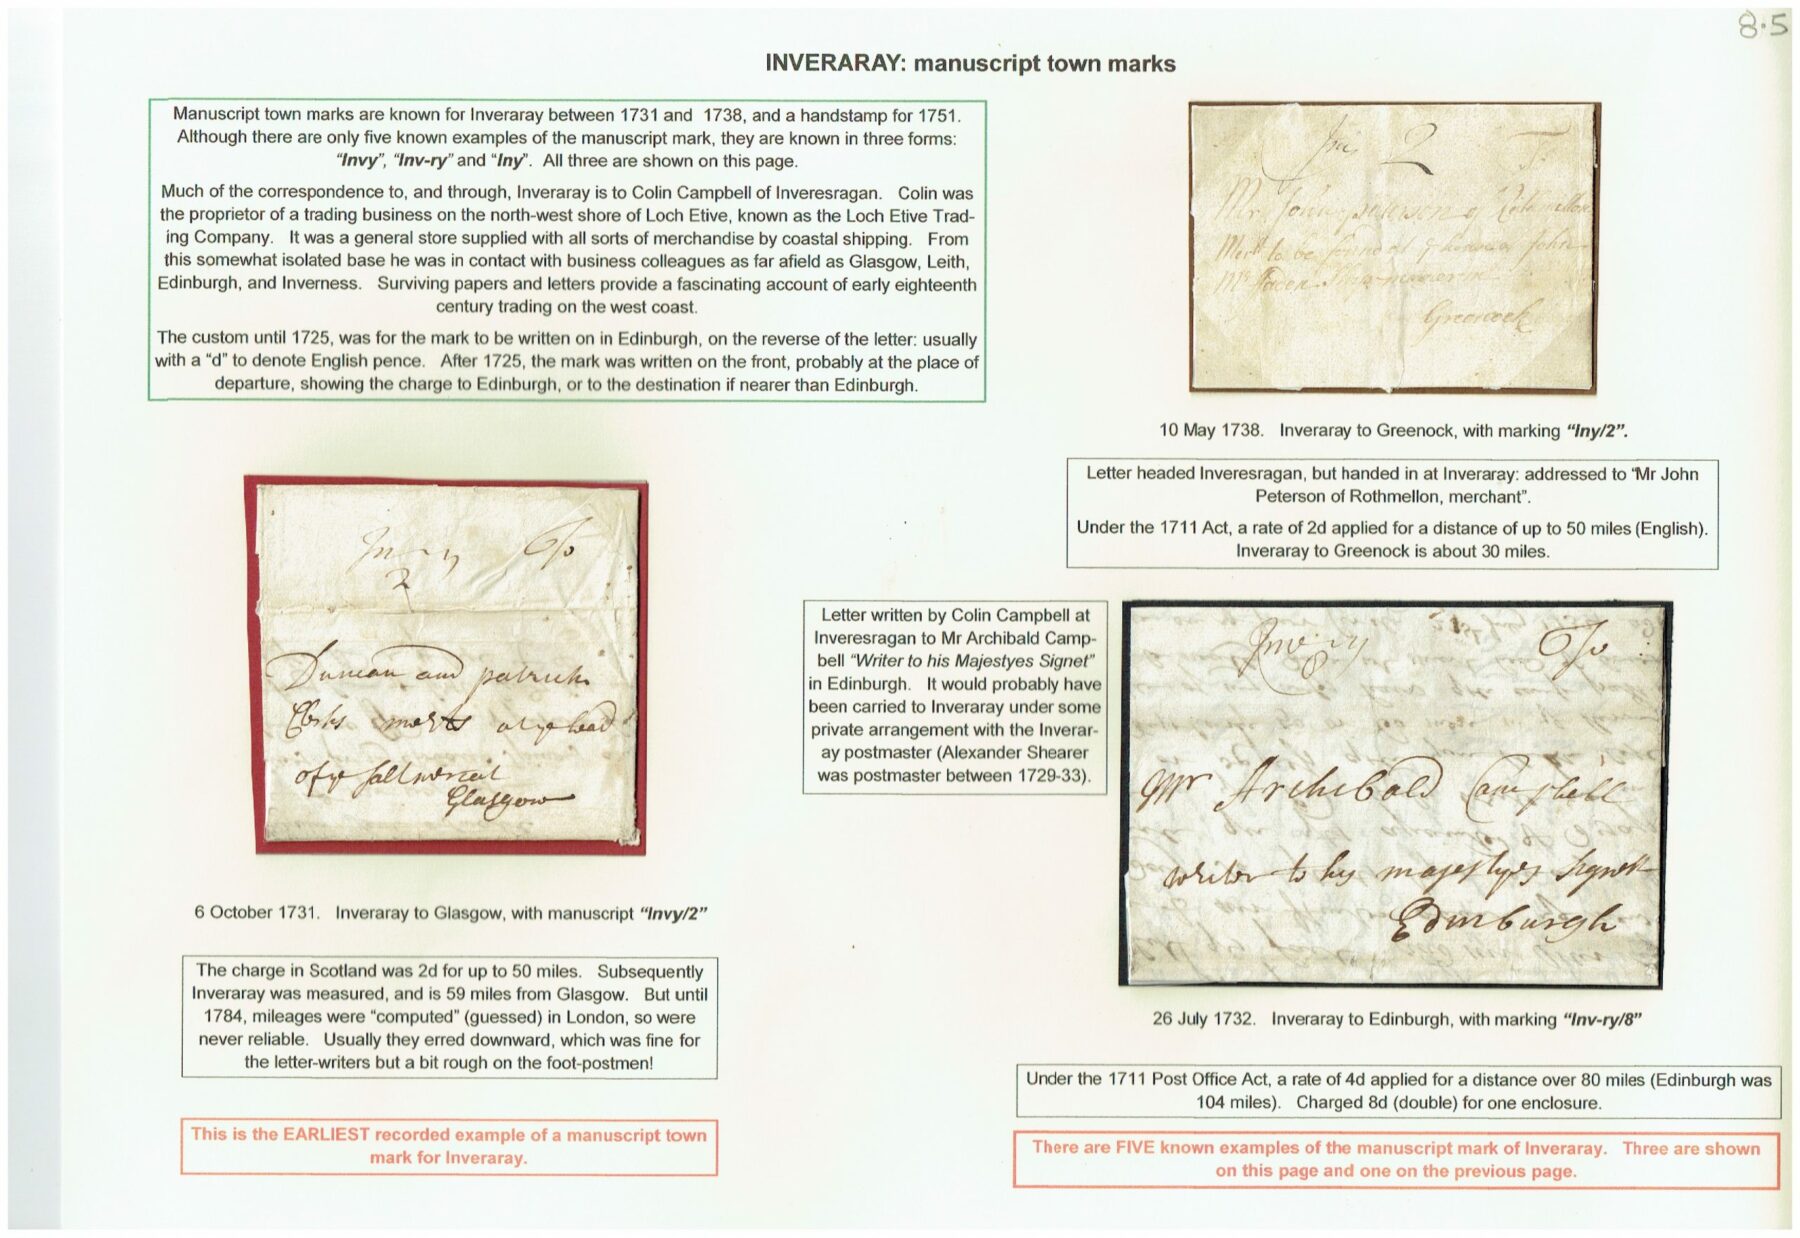 8.5
INVERARAY: manuscript town marks
Manuscript town marks are known for Inveraray between 1731 and 1738, and a handstamp for 1751.
Although there are only five known examples of the manuscript mark, they are known in three forms:
“Invy”, “Inv-ry” and “Iny”. All three are shown on this page.
Much of the correspondence to, and through, Inveraray is to Colin Campbell of Inveresragan. Colin was
the proprietor of a trading business on the north-west shore of Loch Etive, known as the Loch Etive Trad-
ing Company. It was a general store supplied with all sorts of merchandise by coastal shipping. From
this somewhat isolated base he was in contact with business colleagues as far afield as Glasgow, Leith,
Edinburgh, and Inverness. Surviving papers and letters provide a fascinating account of early eighteenth
century trading on the west coast.
The custom until 1725, was for the mark to be written on in Edinburgh, on the reverse of the letter: usually
with a “d” to denote English pence. After 1725, the mark was written on the front, probably at the place of
departure, showing the charge to Edinburgh, or to the destination if nearer than Edinburgh.
2
Greenock
10 May 1738. Inveraray to Greenock, with marking “Iny/2”.
Letter headed Inveresragan, but handed in at Inveraray: addressed to “Mr John
Peterson of Rothmellon, merchant”.
Under the 1711 Act, a rate of 2d applied for a distance of up to 50 miles (English).
Inveraray to Greenock is about 30 miles.
2
Duncan and patrick
merts at ye head
of ye
Glasgow
6 October 1731. Inveraray to Glasgow, with manuscript “Invy/2”
The charge in Scotland was 2d for up to 50 miles. Subsequently
Inveraray was measured, and is 59 miles from Glasgow. But until
1784, mileages were “computed” (guessed) in London, so were
never reliable. Usually they erred downward, which was fine for
the letter-writers but a bit rough on the foot-postmen!
This is the EARLIEST recorded example of a manuscript town
mark for Inveraray.
Letter written by Colin Campbell at
Inveresragan to Mr Archibald Camp-
bell “Writer to his Majestyes Signet”
in Edinburgh. It would probably have
been carried to Inveraray under some
private arrangement with the Inverar-
ay postmaster (Alexander Shearer
was postmaster between 1729-33).
Inv-ry
8
Mr Archibald Campbell
writer to his majestyes signett
Edinburgh
26 July 1732. Inveraray to Edinburgh, with marking “Inv-ry/8”
Under the 1711 Post Office Act, a rate of 4d applied for a distance over 80 miles (Edinburgh was
104 miles). Charged 8d (double) for one enclosure.
There are FIVE known examples of the manuscript mark of Inveraray. Three are shown
on this page and one on the previous page.